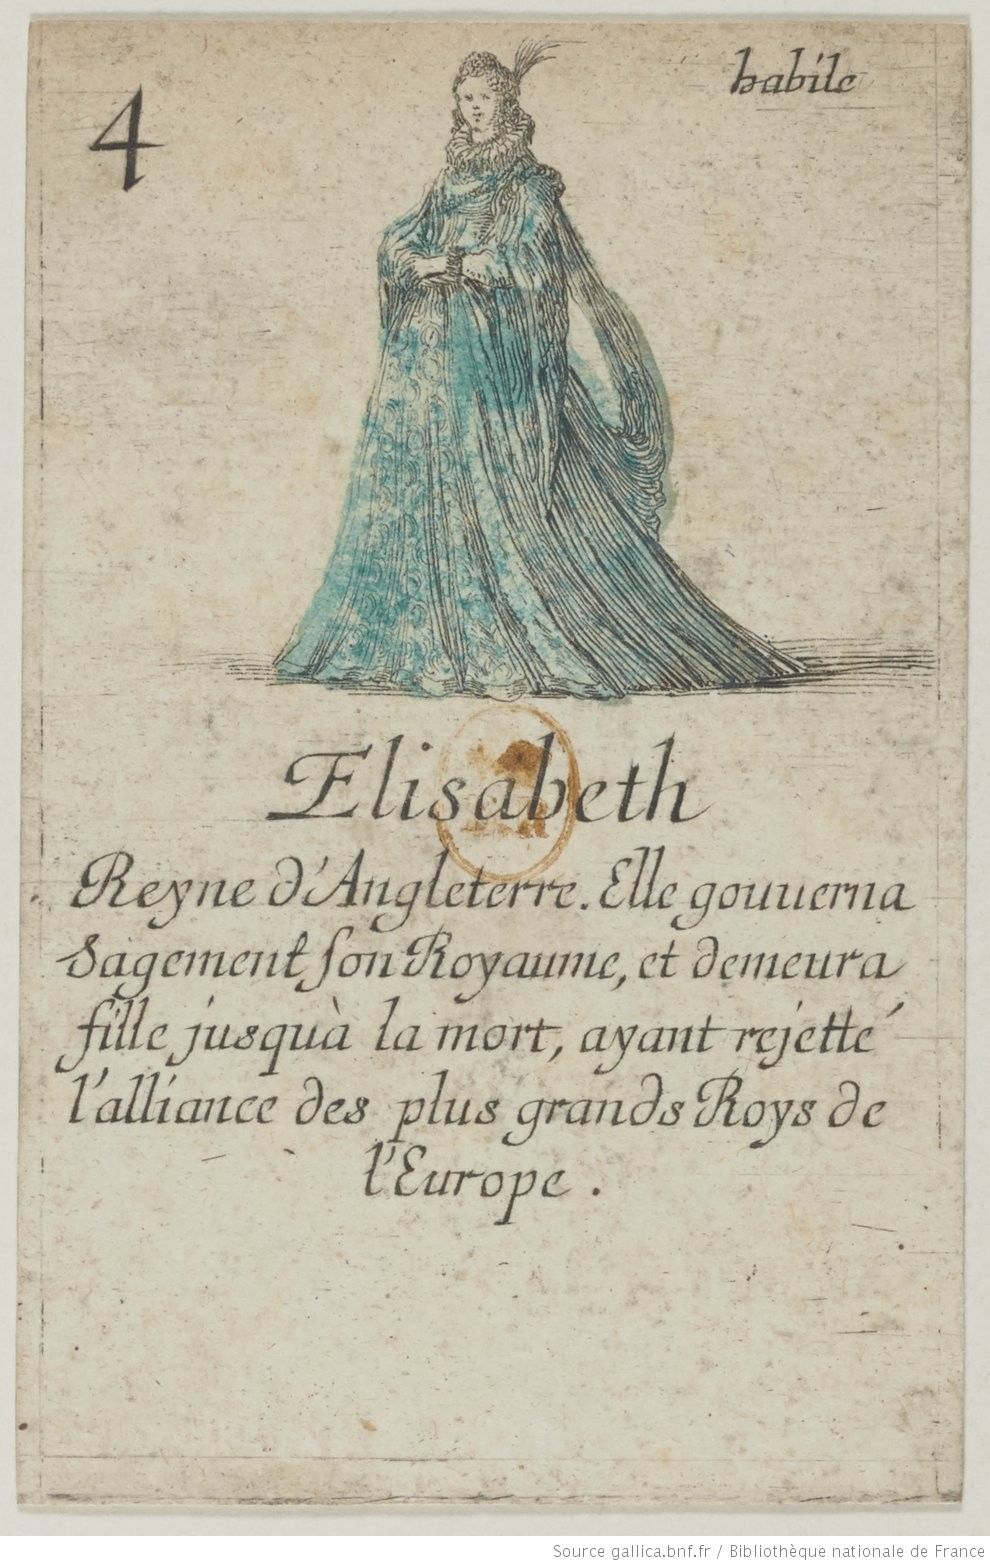 4
habile
Elisabeth
Reyne d'Angleterre. Elle gouuerna
Sagement ſon Royaume, et demeura
fille jusquà la mort, ayant rejetté
l'alliance des plus grands Roys de
l'Europe.
Source gallica.bnf.fr / Bibliothèque nationale de France